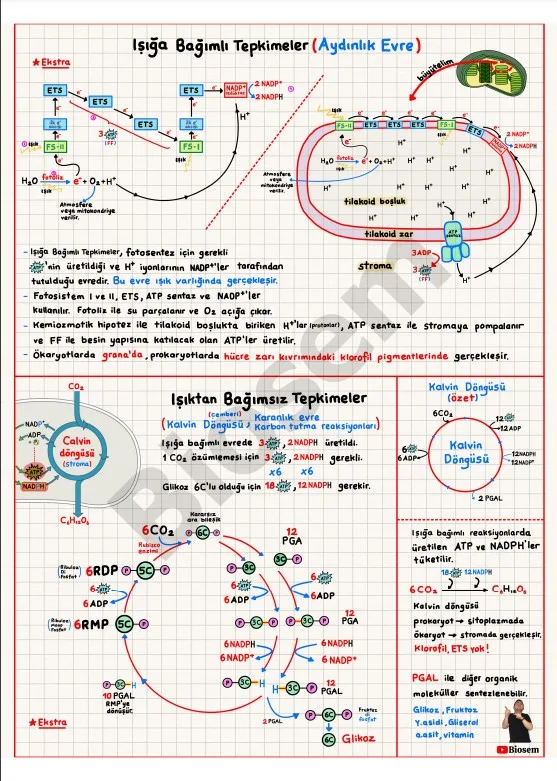 Işığa Bağımlı Tepkimeler (Aydınlık Evre)
★Ekstra
büyütelim
ETS
ETS
ETS
ETS
ETS
e⁻
NADP⁺
2 NADP⁺
2 NADPH
H⁺
3 ATP
(FF)
FS-II
Işık
FS-I
Işık
H₂O fotoliz e⁻ + O₂ + H⁺
Işık
Atmosfere
veya mitokondriye
verilir.
FS-II
ETS
ETS
ETS
FS-I
ETS
NADP
2 NADP⁺
2 NADPH
H₂O fotoliz e⁻ + O₂ + H⁺
Işık
Atmosfere veya
mitokondriye
verilir.
H⁺ H⁺ H⁺ H⁺ H⁺ H⁺
tilakoid boşluk
tilakoid zar
ATP
sentaz
stroma
3ADP
3 ATP
(FF)
H⁺
- Işığa Bağımlı Tepkimeler, fotosentez için gerekli
ATP'nin üretildiği ve H⁺ iyonlarının NADP⁺'ler tarafından
tutulduğu evredir. Bu evre ışık varlığında gerçekleşir.
- Fotosistem I ve II, ETS, ATP sentaz ve NADP⁺'ler
kullanılır. Fotoliz ile su parçalanır ve O₂ açığa çıkar.
- Kemiozmotik hipotez ile tilakoid boşlukta biriken H⁺'ler (protonlar), ATP sentaz ile stromaya pompalanır
ve FF ile besin yapısına katılacak olan ATP'ler üretilir.
- Ökaryotlarda grana'da, prokaryotlarda hücre zarı kıvrımındaki klorofil pigmentlerinde gerçekleşir.
CO₂
NADP⁺
ADP
+ P
ATP
NADPH
Calvin
döngüsü
(stroma)
C₆H₁₂O₆
Işıktan Bağımsız Tepkimeler
(çemberi)
(Kalvin Döngüsü, Karanlık evre
Karbon tutma reaksiyonları)
Işığa bağımlı evrede 3 ATP, 2 NADPH üretildi.
1 CO₂ özümlemesi için 3 ATP, 2 NADPH gerekli.
x6 x6
Glikoz 6C'lu olduğu için 18 ATP, 12 NADPH gerekir.
Kararsız
ara bileşik
6CO₂
Rubisco
enzimi
P 6C P
12
PGA
3C P
(Ribuloz
Di
fosfat)
6RDP
P 5C P
6 ATP
6ADP
6 ATP
6ADP
6 ATP
6ADP
(Ribuloz
Mono
fosfat)
6RMP
5C P
P 3C P
P 3C P
12
PGA
6 NADPH
6 NADP⁺
6 NADPH
6 NADP⁺
P 3C H
P 3C H
12
PGAL
P 3C H
10 PGAL
RMP'ye
dönüşür.
2 PGAL
P 6C P
Fruktoz
di
fosfat
6C
Glikoz
★Ekstra
Kalvin Döngüsü
(özet)
6CO₂
12 ATP
12 ADP
6 ATP
6 ADP
Kalvin
Döngüsü
12NADPH
12NADP⁺
2 PGAL
Işığa bağımlı reaksiyonlarda
üretilen ATP ve NADPH'ler
tüketilir.
18 ATP 12 NADPH
6 CO₂ → C₆H₁₂O₆
Kalvin döngüsü
prokaryot → sitoplazmada
ökaryot → stromada gerçekleşir.
Klorofil, ETS yok!
PGAL ile diğer organik
moleküller sentezlenebilir.
Glikoz, Fruktoz
Y.asidi, Gliserol
a.asit, vitamin
Biosem
Biosem